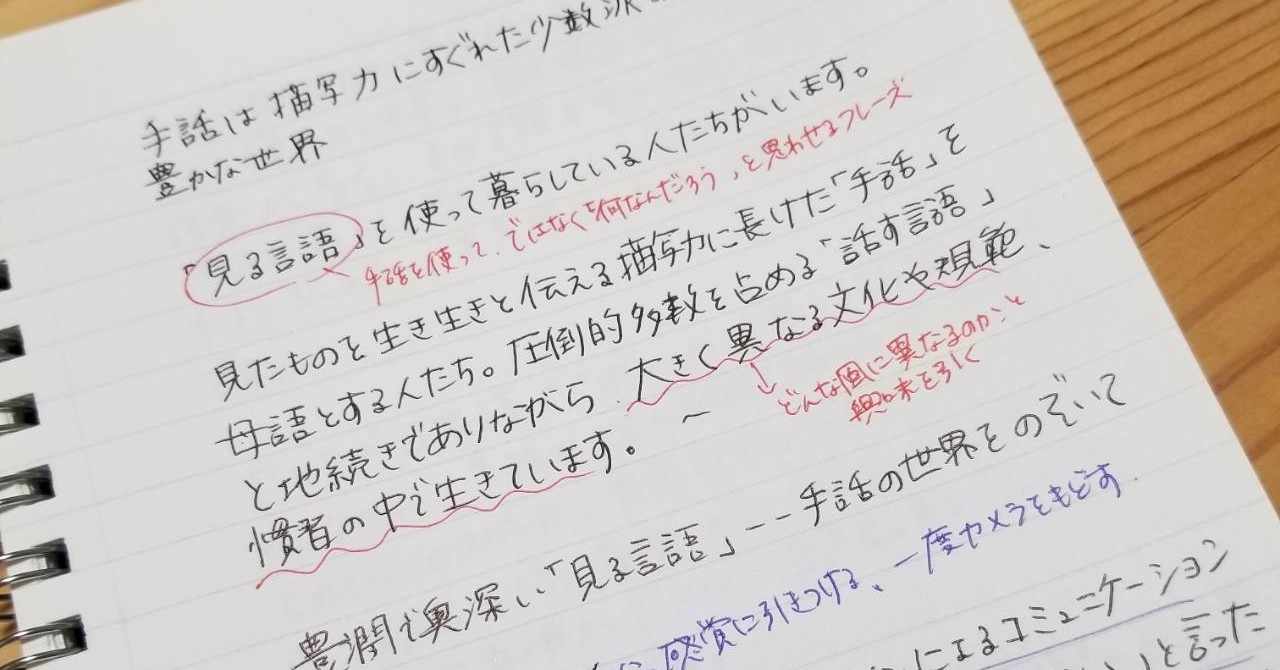 手話は描写力にすぐれた少数派
豊かな世界
「見る言語」を使って暮らしている人たちがいます。
手話を使って、ではなく「何なんだろう」と思わせるフレーズ
見たものを生き生きと伝える描写力に長けた「手話」を
母語とする人たち。圧倒的多数を占める「話す言語」
と地続きでありながら、大きく異なる文化や規範、
どんな風に異なるのかこと
興味を引く
慣習の中で生きています。 〜
豊潤で奥深い「見る言語」--手話の世界をのぞいて
感覚に引きつける、一度カメラをもどす.
によるコミュニケーション
」と言った